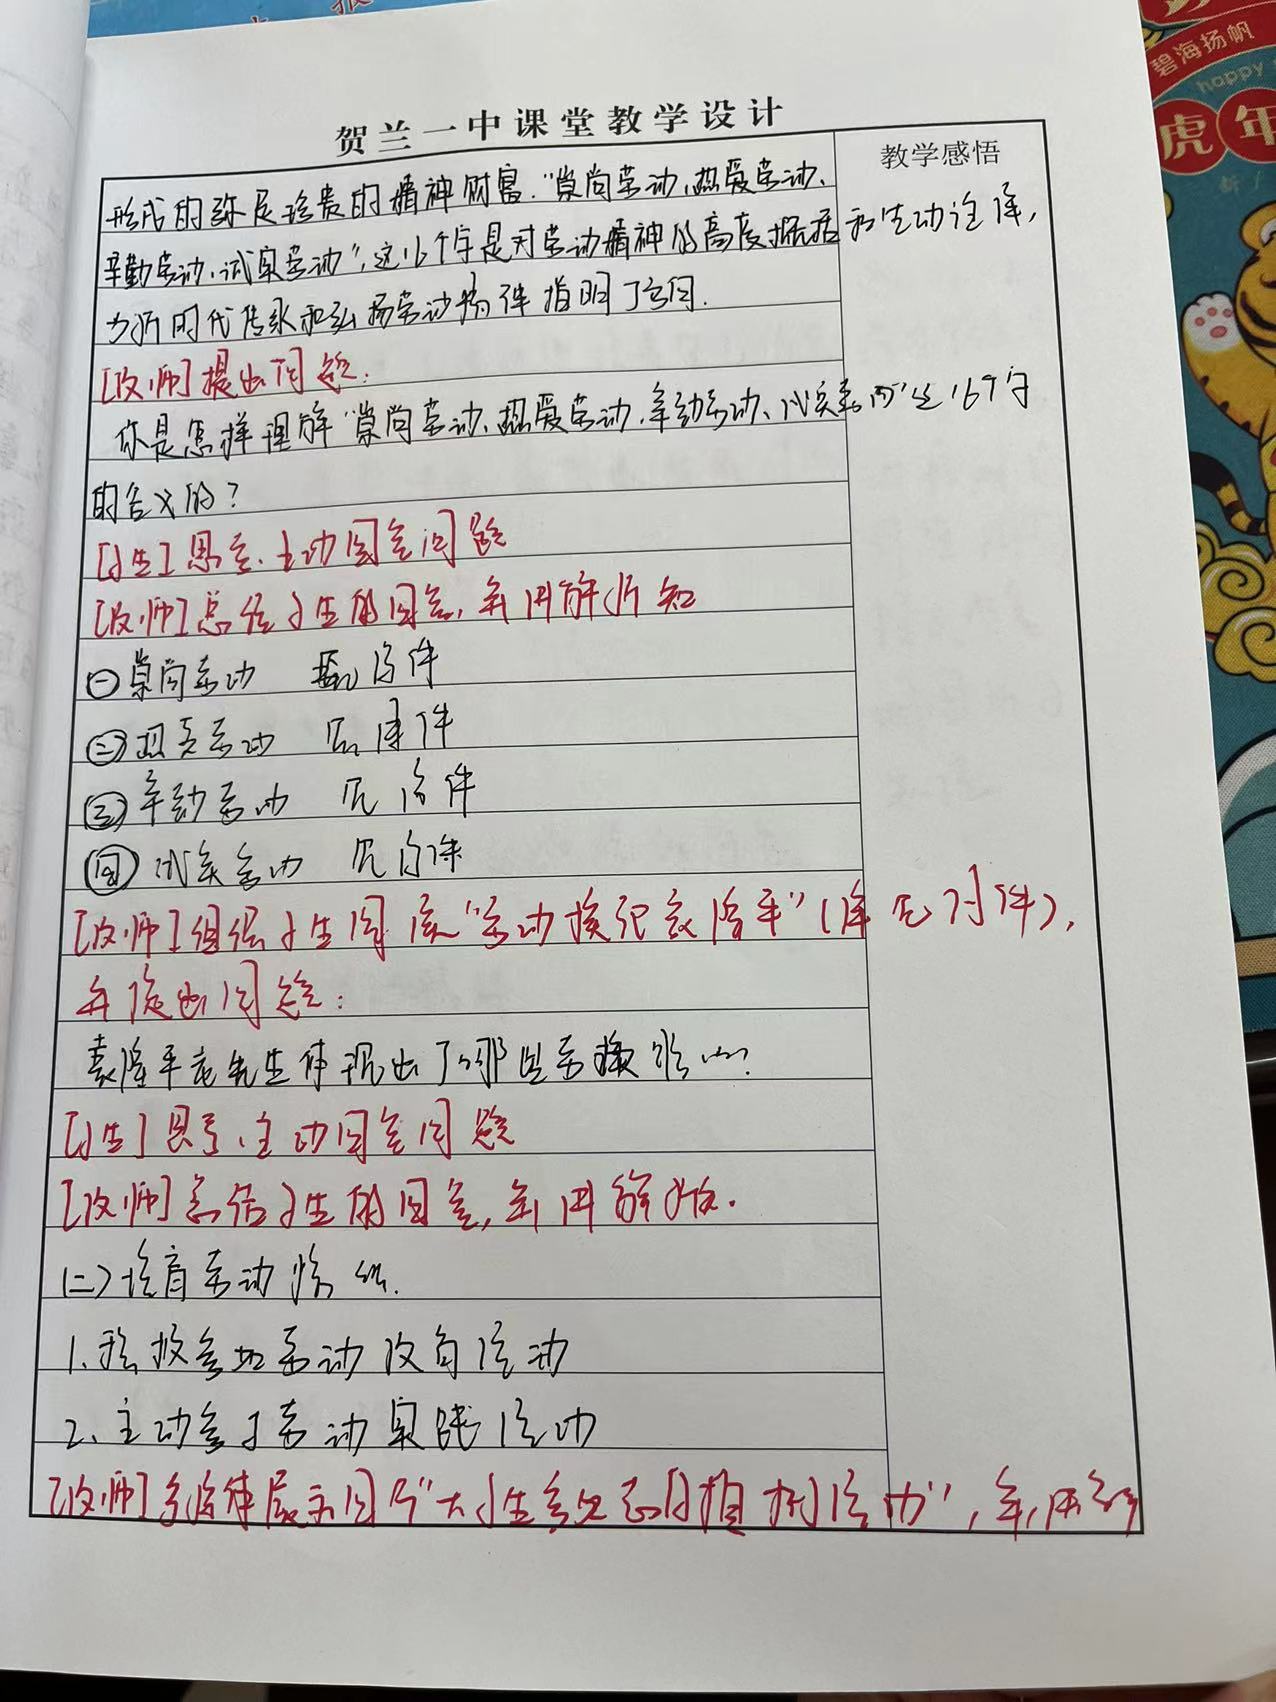 碧海扬帆
happy
虎年
贺兰一中课堂教学设计
教学感悟
形成的弥足珍贵的精神财富."崇尚劳动、热爱劳动、
辛勤劳动、诚实劳动",这16个字是对劳动精神的高度概括和生动诠释,
为新时代传承和弘扬劳动精神指明了方向.
[教师]提出问题:
你是怎样理解"崇尚劳动、热爱劳动、辛勤劳动、诚实劳动"这16个字
的含义的?
[学生]思考、主动回答问题
[教师]总结学生的回答,并讲解新知
㊀崇尚劳动 见课件
㊁热爱劳动 见课件
㊂辛勤劳动 见课件
㊃诚实劳动 见课件
[教师]组织学生阅读"劳动模范袁隆平"(详见课件),
并提出问题:
袁隆平老先生体现出了哪些劳模精神?
[学生]思考、主动回答问题
[教师]总结学生的回答,并讲解新知.
(二)培育劳动精神.
1、积极参加劳动教育活动
2、主动参与劳动实践活动
[教师]多媒体展示图片"大学生参加植树活动",并讲解